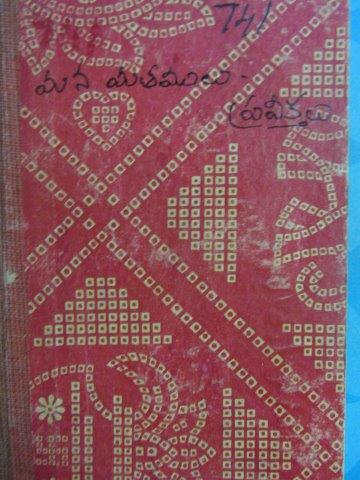 741
మన మతములు -
ప్రవక్తలు